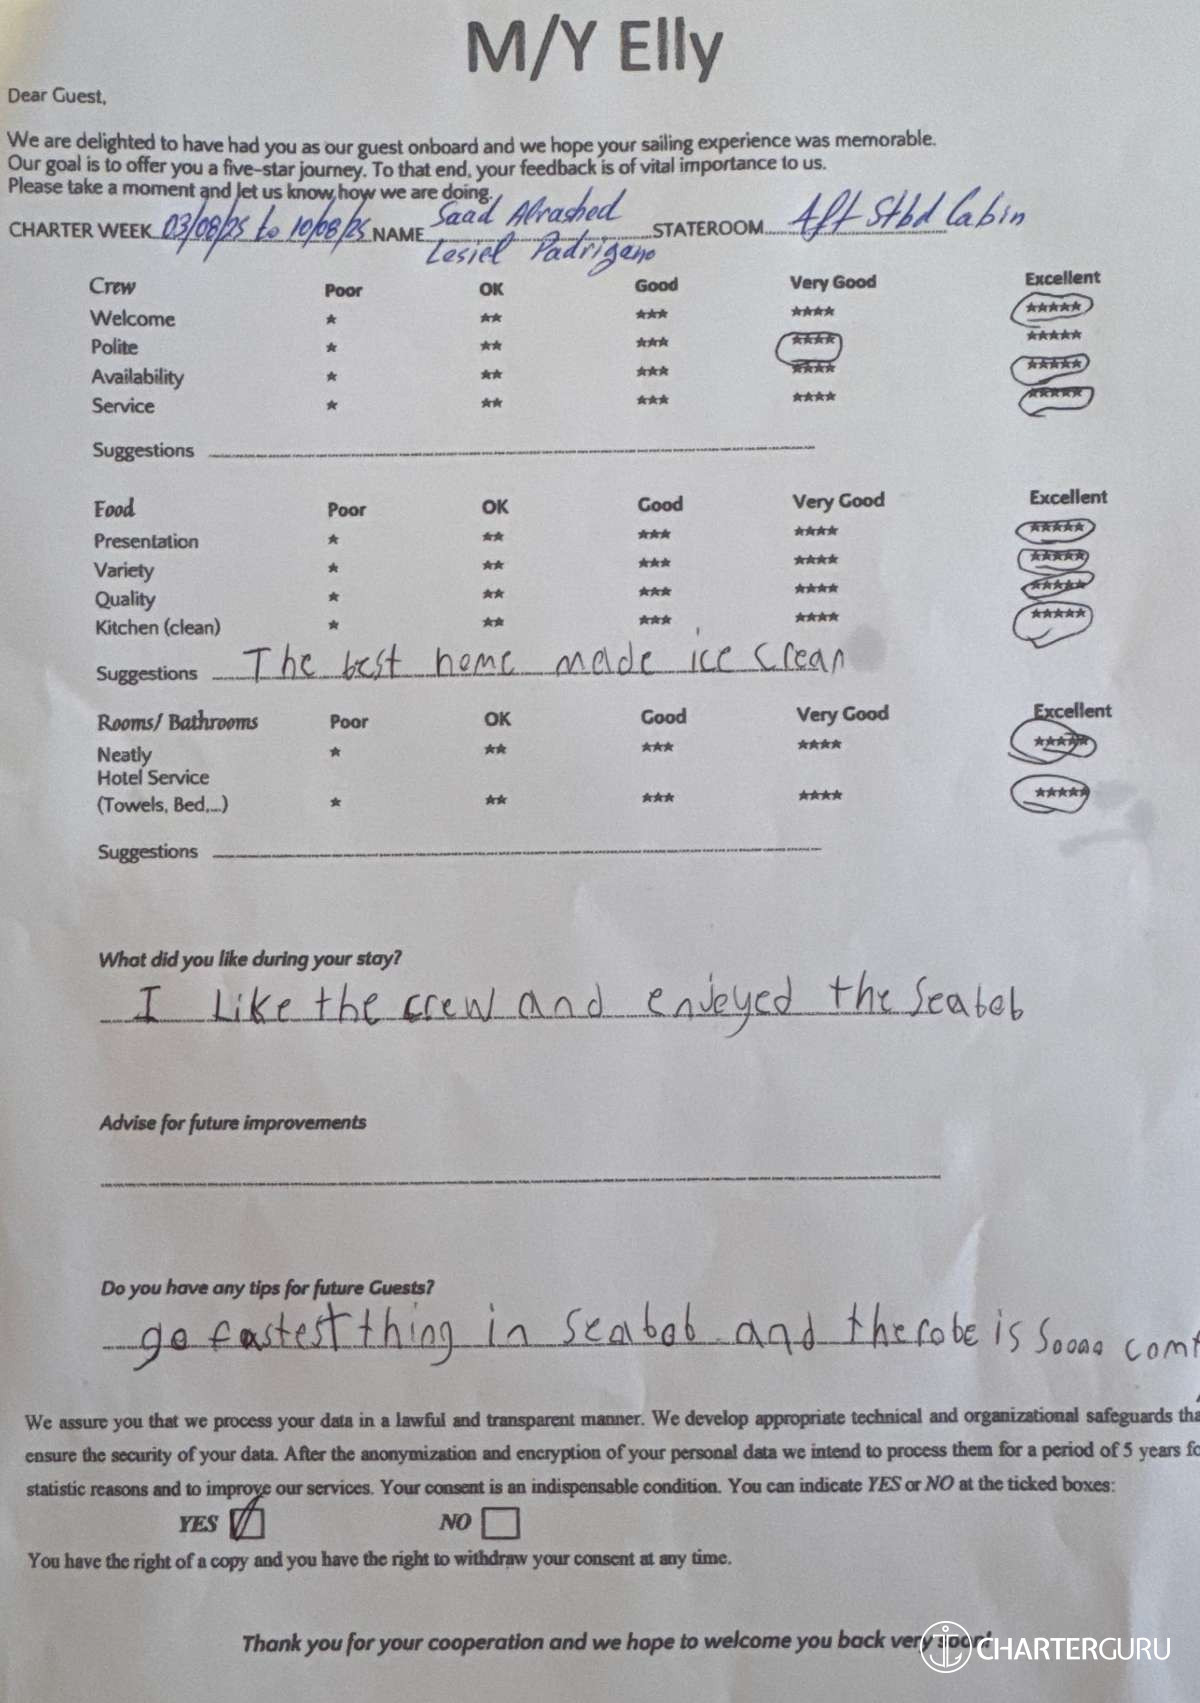 M/Y Elly
Dear Guest,
We are delighted to have had you as our guest onboard and we hope your sailing experience was memorable.
Our goal is to offer you a five-star journey. To that end, your feedback is of vital importance to us.
Please take a moment and let us know how we are doing.
CHARTER WEEK 03/08/25 to 10/08/25 NAME Saad Alrashed STATEROOM Aft Stbd Cabin
Lesiel Padrigano
Crew Poor OK Good Very Good Excellent
Welcome ★ ★★ ★★★ ★★★★ ★★★★★
Polite ★ ★★ ★★★ ★★★★ ★★★★★
Availability ★ ★★ ★★★ ★★★★ ★★★★★
Service ★ ★★ ★★★ ★★★★ ★★★★★
Suggestions
Food Poor OK Good Very Good Excellent
Presentation ★ ★★ ★★★ ★★★★ ★★★★★
Variety ★ ★★ ★★★ ★★★★ ★★★★★
Quality ★ ★★ ★★★ ★★★★ ★★★★★
Kitchen (clean) ★ ★★ ★★★ ★★★★ ★★★★★
Suggestions The best home made ice crean
Rooms/ Bathrooms Poor OK Good Very Good Excellent
Neatly ★ ★★ ★★★ ★★★★ ★★★★★
Hotel Service
(Towels, Bed,...) ★ ★★ ★★★ ★★★★ ★★★★★
Suggestions
What did you like during your stay?
I like the crew and enjeyed the seabob
Advise for future improvements
Do you have any tips for future Guests?
go fastest thing in seabob and the robe is soooo comf
We assure you that we process your data in a lawful and transparent manner. We develop appropriate technical and organizational safeguards tha
ensure the security of your data. After the anonymization and encryption of your personal data we intend to process them for a period of 5 years fo
statistic reasons and to improve our services. Your consent is an indispensable condition. You can indicate YES or NO at the ticked boxes:
YES NO
You have the right of a copy and you have the right to withdraw your consent at any time.
Thank you for your cooperation and we hope to welcome you back very soon!
CHARTERGURU